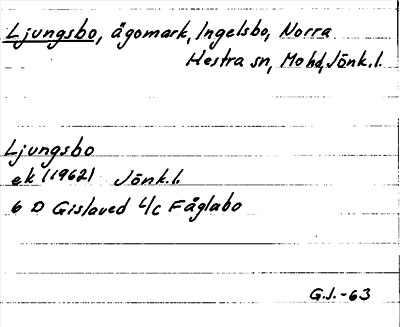 Ljungsbo, ägomark, Ingelsbo, Norra
Hestra sn, Mo hd, Jönk. l.
Ljungsbo
ek (1962) Jönk. l.
6 D Gislaved l/c Fåglabo
G.J. -63